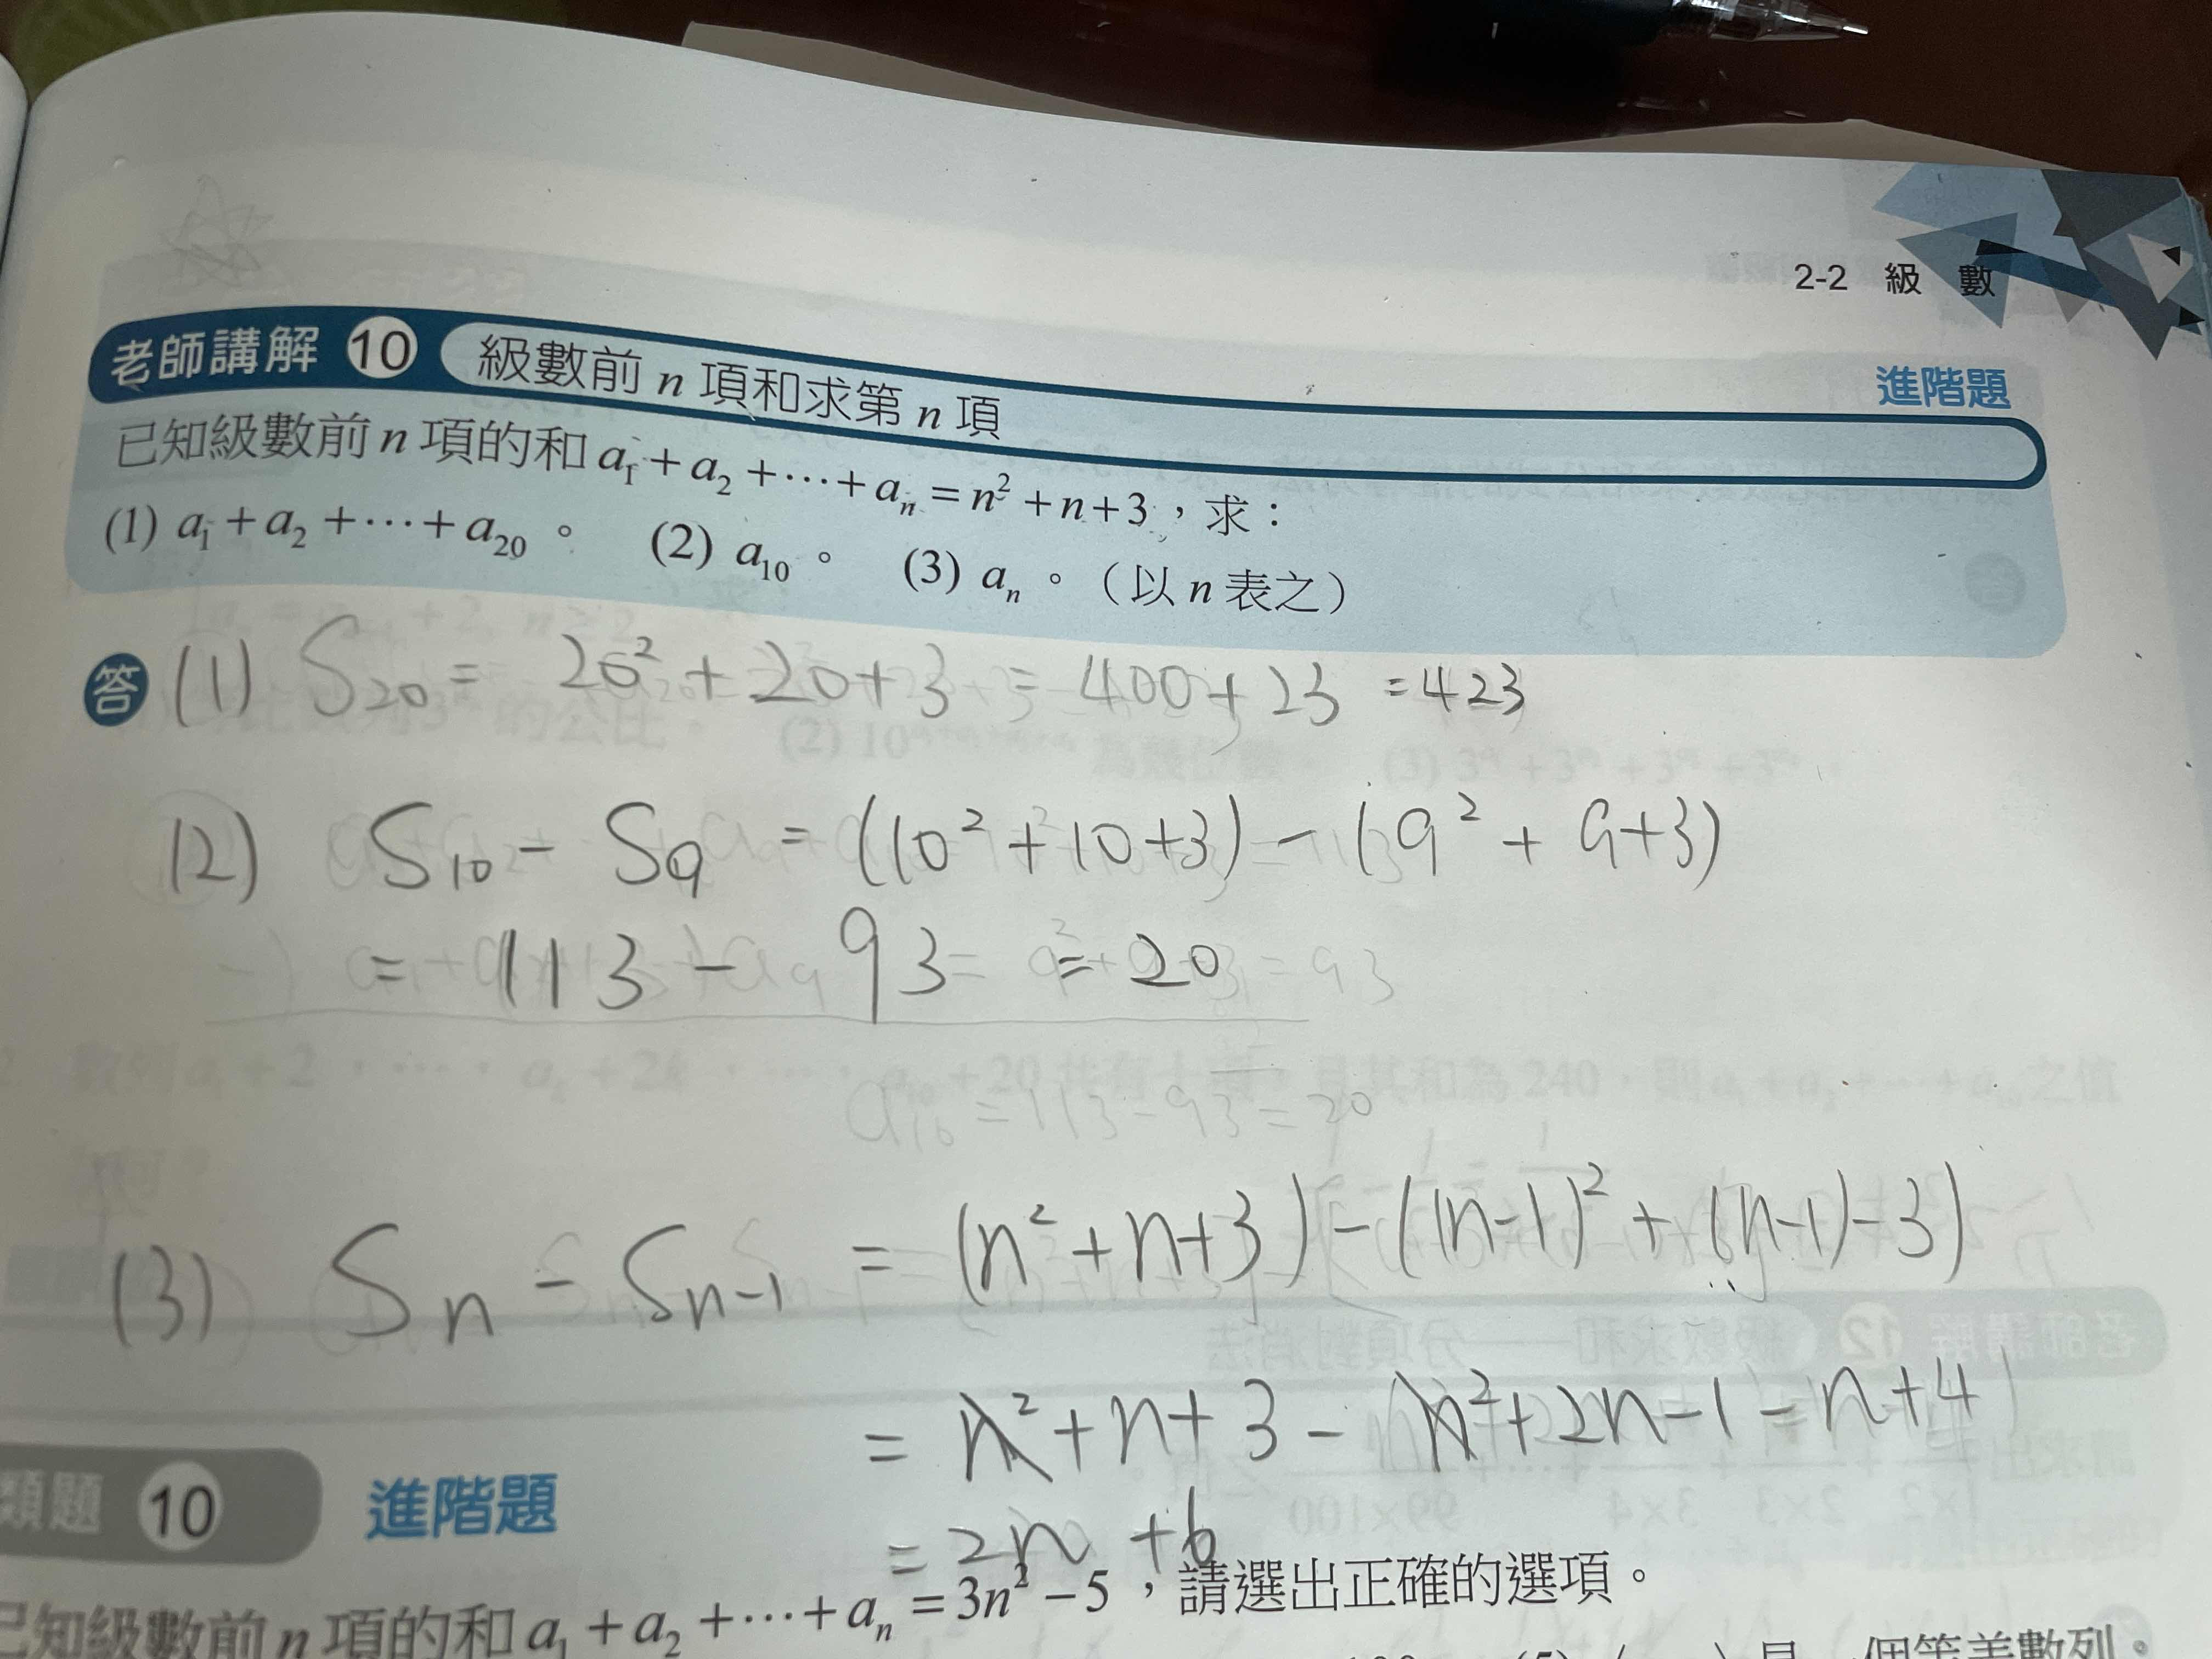 2-2 級 數
老師講解 10 級數前 n 項和求第 n 項
進階題
已知級數前 n 項的和 a₁ + a₂ + ⋯ + aₙ = n² + n + 3，求：
(1) a₁ + a₂ + ⋯ + a₂₀。 (2) a₁₀。 (3) aₙ。（以 n 表之）
答 (1) S₂₀ = 20² + 20 + 3 = 400 + 23 = 423
(2) S₁₀ - S₉ = (10² + 10 + 3) - (9² + 9 + 3)
= 113 - 93 = 20
a₁₀ = 113 - 93 = 20
(3) Sₙ - Sₙ₋₁ = (n² + n + 3) - ((n-1)² + (n-1) - 3)
= n² + n + 3 - n² + 2n - 1 - n + 4
= 2n + 6
類題 10 進階題
已知級數前 n 項的和 a₁ + a₂ + ⋯ + aₙ = 3n² - 5，請選出正確的選項。
個等差數列。